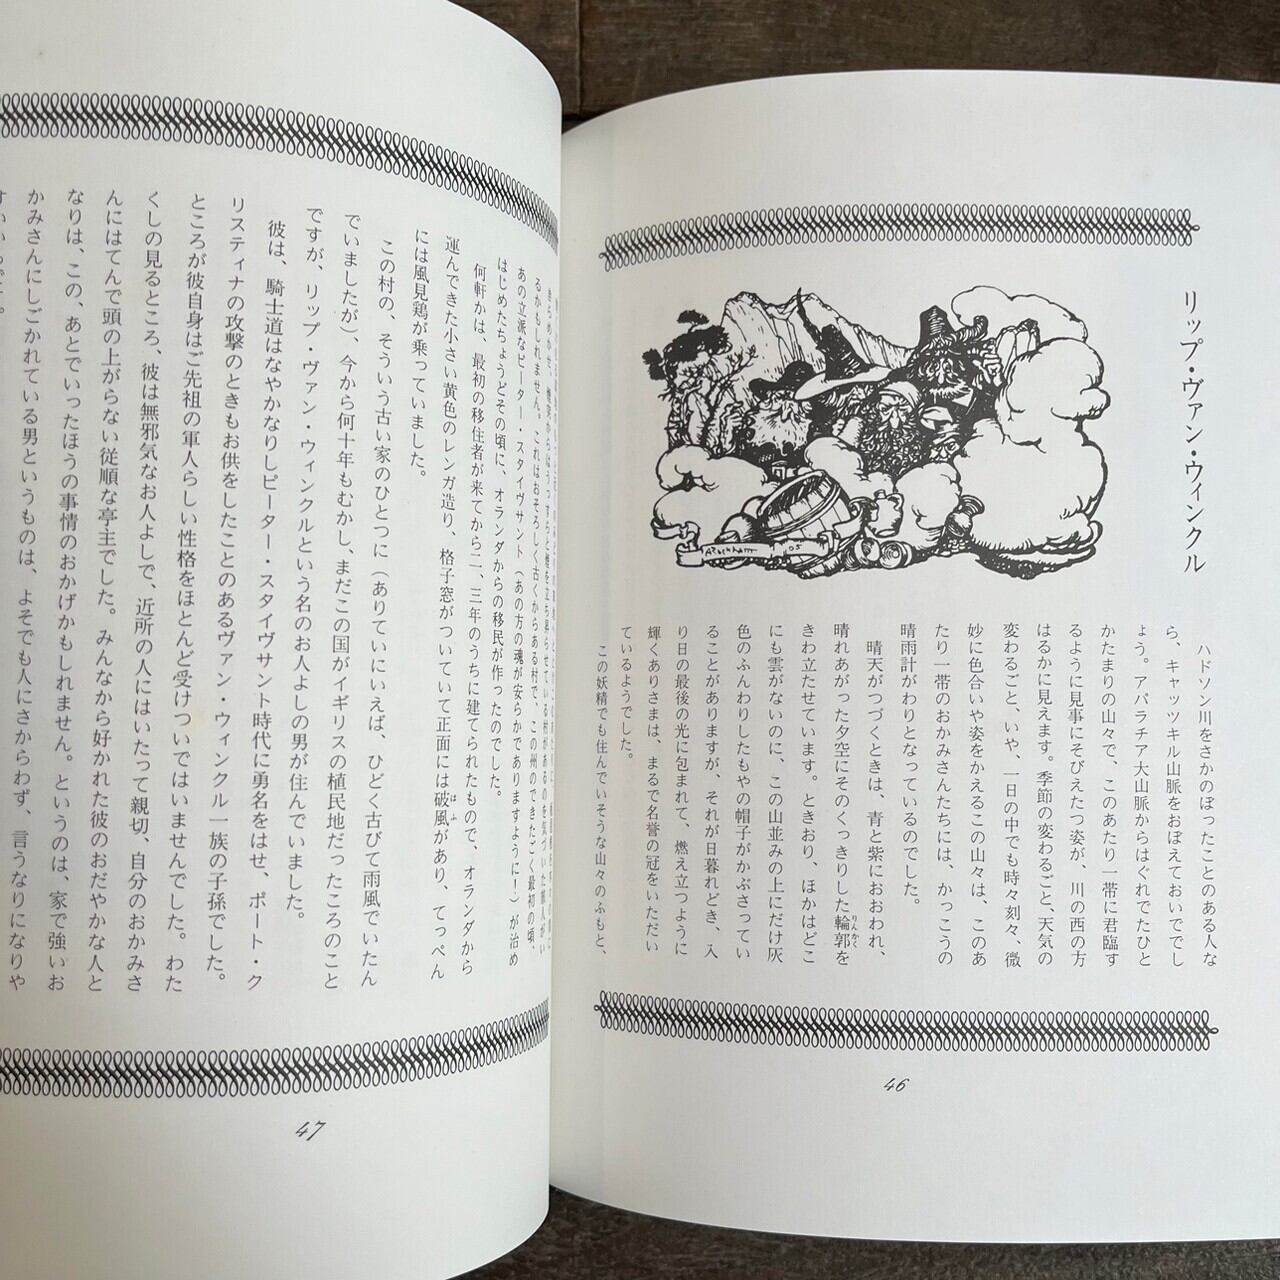 リップ・ヴァン・ウィンクル
ARackham 05
ハドソン川をさかのぼったことのある人な
ら、キャッツキル山脈をおぼえておいでし
ょう。アパラチア大山脈からはぐれでたひと
かたまりの山々で、このあたり一帯に君臨す
るように見事にそびえたつ姿が、川の西の方
はるかに見えます。季節の変わるごと、天気の
変わるごと、いや、一日の中でも時々刻々、微
妙に色合いや姿をかえるこの山々は、このあ
たり一帯のおかみさんたちには、かっこうの
晴雨計がわりとなっているのでした。
晴天がつづくときは、青と紫におおわれ、
晴れあがった夕空にそのくっきりした輪郭を
りんかく
きわ立たせています。ときおり、ほかはどこ
にも雲がないのに、この山並みの上にだけ灰
色のふんわりしたもやの帽子がかぶさってい
ることがありますが、それが日暮れどき、入
り日の最後の光に包まれて、燃え立つように
輝くありさまは、まるで名誉の冠をいただい
ているようでした。
この妖精でも住んでいそうな山々のふもと、
46
きらめかせ、煙突からはうっすらと煙を立ち昇らせている村があるのを気づいた旅人がい
るかもしれません。これはおそろしく古くからある村で、この州のできたごく最初の頃、
あの立派なピーター・スタイヴサント（あの方の魂が安らかでありますように！）が治め
はじめたちょうどその頃に、オランダからの移民が作ったのでした。
何軒かは、最初の移住者が来てから二、三年のうちに建てられたもので、オランダから
運んできた小さい黄色のレンガ造り、格子窓がついていて正面には破風があり、てっぺん
はふ
には風見鶏が乗っていました。
この村の、そういう古い家のひとつに（ありていにいえば、ひどく古びて雨風でいたん
でいましたが）、今から何十年もむかし、まだこの国がイギリスの植民地だったころのこと
ですが、リップ・ヴァン・ウィンクルという名のお人よしの男が住んでいました。
彼は、騎士道はなやかなりしピーター・スタイヴサント時代に勇名をはせ、ポート・ク
リスティナの攻撃のときもお供をしたことのあるヴァン・ウィンクル一族の子孫でした。
ところが彼自身はご先祖の軍人らしい性格をほとんど受けついではいませんでした。わた
くしの見るところ、彼は無邪気なお人よしで、近所の人にはいたって親切、自分のおかみさ
んにはてんで頭の上がらない従順な亭主でした。みんなから好かれた彼のおだやかな人と
なりは、この、あとでいったほうの事情のおかげかもしれません。というのは、家で強いお
かみさんにしごかれている男というものは、よそでも人にさからわず、言うなりになりや
すいからです。
47